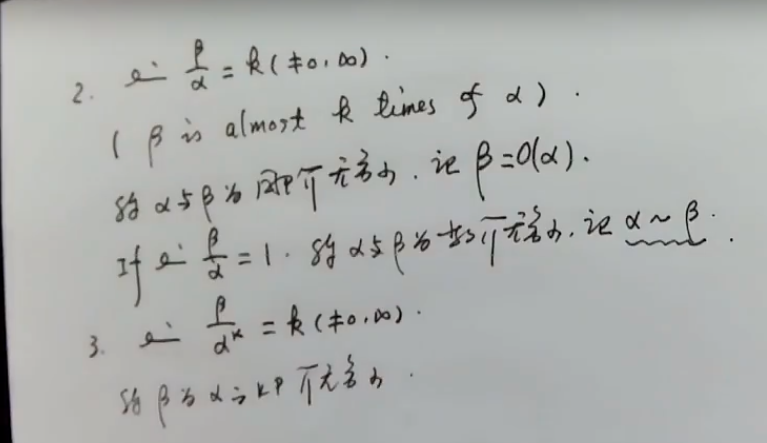 2. lim β/α = k (≠0, ∞).
( β is almost k times of α ).
称 α 与 β 为同阶无穷小, 记 β=O(α).
If lim β/α = 1. 称 α 与 β 为等价无穷小, 记 α ~ β.
3. lim β/α^k = k (≠0, ∞).
称 β 为 α 之 k 阶无穷小.